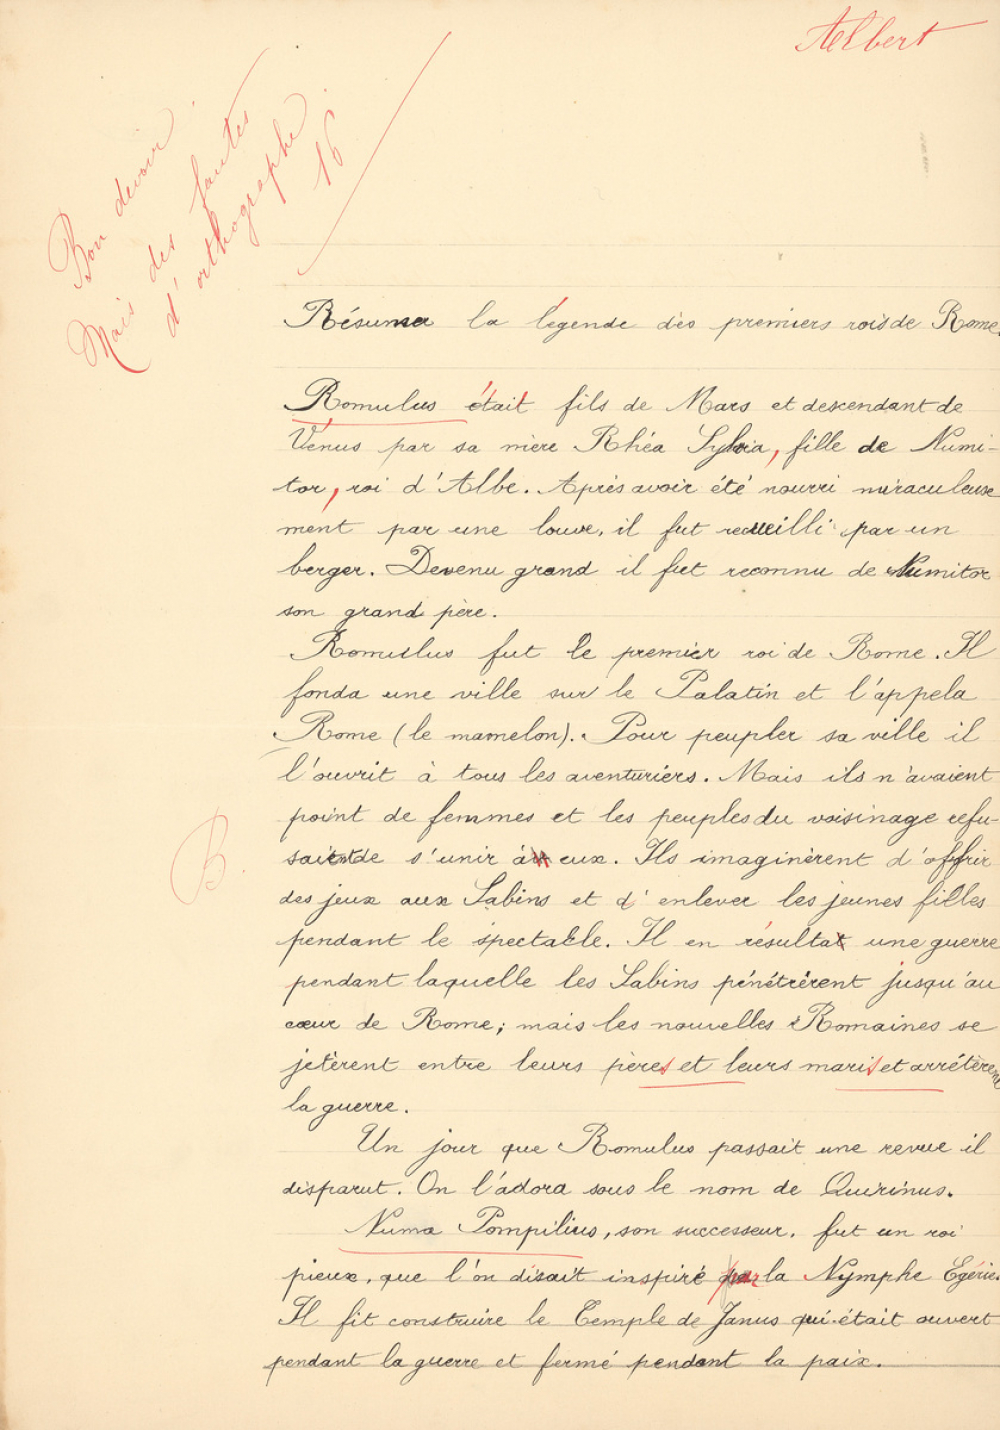 Albert
Bon devoir
Mais des fautes
d'orthographe
16
Résumer la légende des premiers rois de Rome.
Romulus était fils de Mars et descendant de
Vénus par sa mère Rhéa Sylvia, fille de Numi-
tor, roi d'Albe. Après avoir été nourri miraculeuse
ment par une louve, il fut recueilli par un
berger. Devenu grand il fut reconnu de Numitor
son grand père.
Romulus fut le premier roi de Rome. Il
fonda une ville sur le Palatin et l'appela
Rome (le mamelon). Pour peupler sa ville il
l'ouvrit à tous les aventuriers. Mais ils n'avaient
point de femmes et les peuples du voisinage refu-
saient de s'unir à eux. Ils imaginèrent d'offrir
des jeux aux Sabins et d'enlever les jeunes filles
pendant le spectacle. Il en résulta une guerre
pendant laquelle les Sabins pénétrèrent jusqu'au
cœur de Rome; mais les nouvelles Romaines se
jetèrent entre leurs pères et leurs maris et arrêtèrent
la guerre.
B.
Un jour que Romulus passait une revue il
disparut. On l'adora sous le nom de Quirinus.
Numa Pompilius, son successeur, fut un roi
pieux, que l'on disait inspiré par la Nymphe Egérie.
Il fit construire le Temple de Janus qui était ouvert
pendant la guerre et fermé pendant la paix.